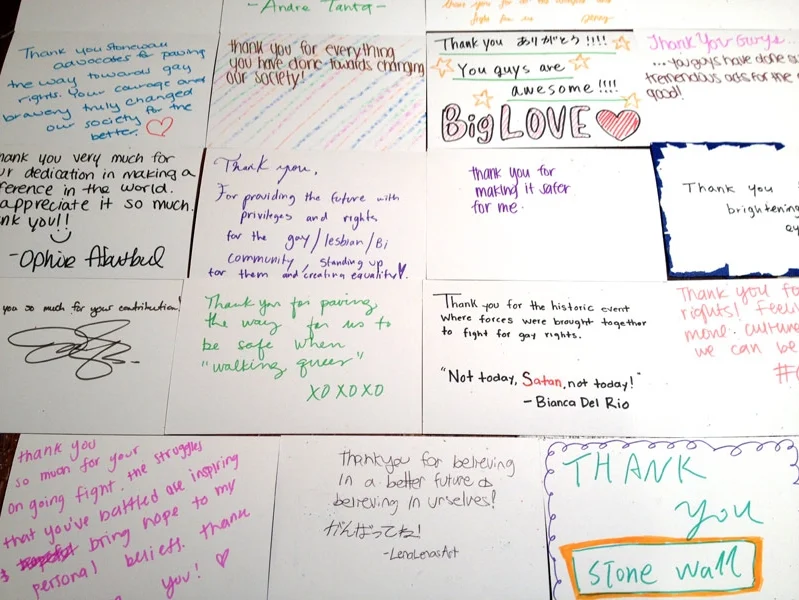 -Andre Tanta-
Thank you Stonewall
advocates for paving
the way towards gay
rights. Your courage and
bravery truly changed
our society for the
better.
thank you for everything
you have done towards changing
our society!
Thank you ありがとう !!!!
You guys are
awesome !!!!
Big LOVE
Thank You Guys...
...you guys have done
tremendous acts for the
good!
hank you very much for
ur dedication in making a
ference in the world.
appreciate it so much.
nk you!!
Thank you,
For providing the future with
privileges and rights
for the gay/lesbian/Bi
community, standing up
for them and creating equality!
thank you for
making it safer
for me.
Thank you
brightening
you so much for your contribution!
Thank you for paving
the way for us to
be safe when
"walking queer"
XOXOXO
Thank you for the historic event
where forces were brought together
to fight for gay rights.
"Not today, Satan, not today!"
- Bianca Del Rio
Thank you fo
rights! Feel
more
we can be
thank you
so much for your
on going fight. the struggles
that you've battled are inspiring
bring hope to my
personal beliefs. thank
you!
Thankyou for believing
in a better future &
believing in urselves!
がんばってね!
-LenaLenasArt
THANK
you
Stone wall